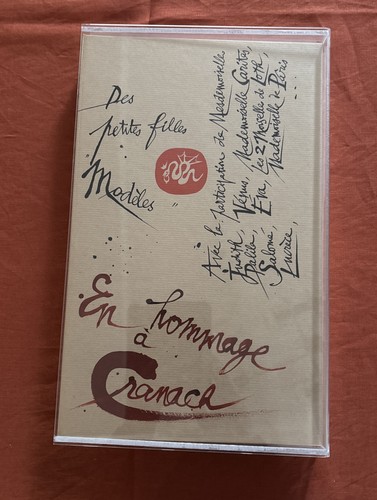 Des
petites filles
Modèles "
Avec la participation de Mesdemoiselles
Judith, Vénus, Mademoiselle Caritas,
Dalila, Eva, Les 2 Moiselles de Loth,
Salomé, Mademoiselle de Pâris
Lucrèce, ...
En hommage
à
Cranach